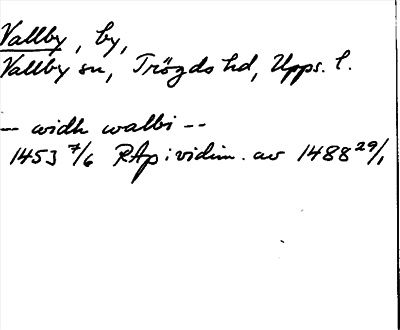 Vallby, by,
Vallby sn, Trögds hd, Upps. l.
-- widh walbi --
1453 7/6 RAp i vidim. av 1488 29/1